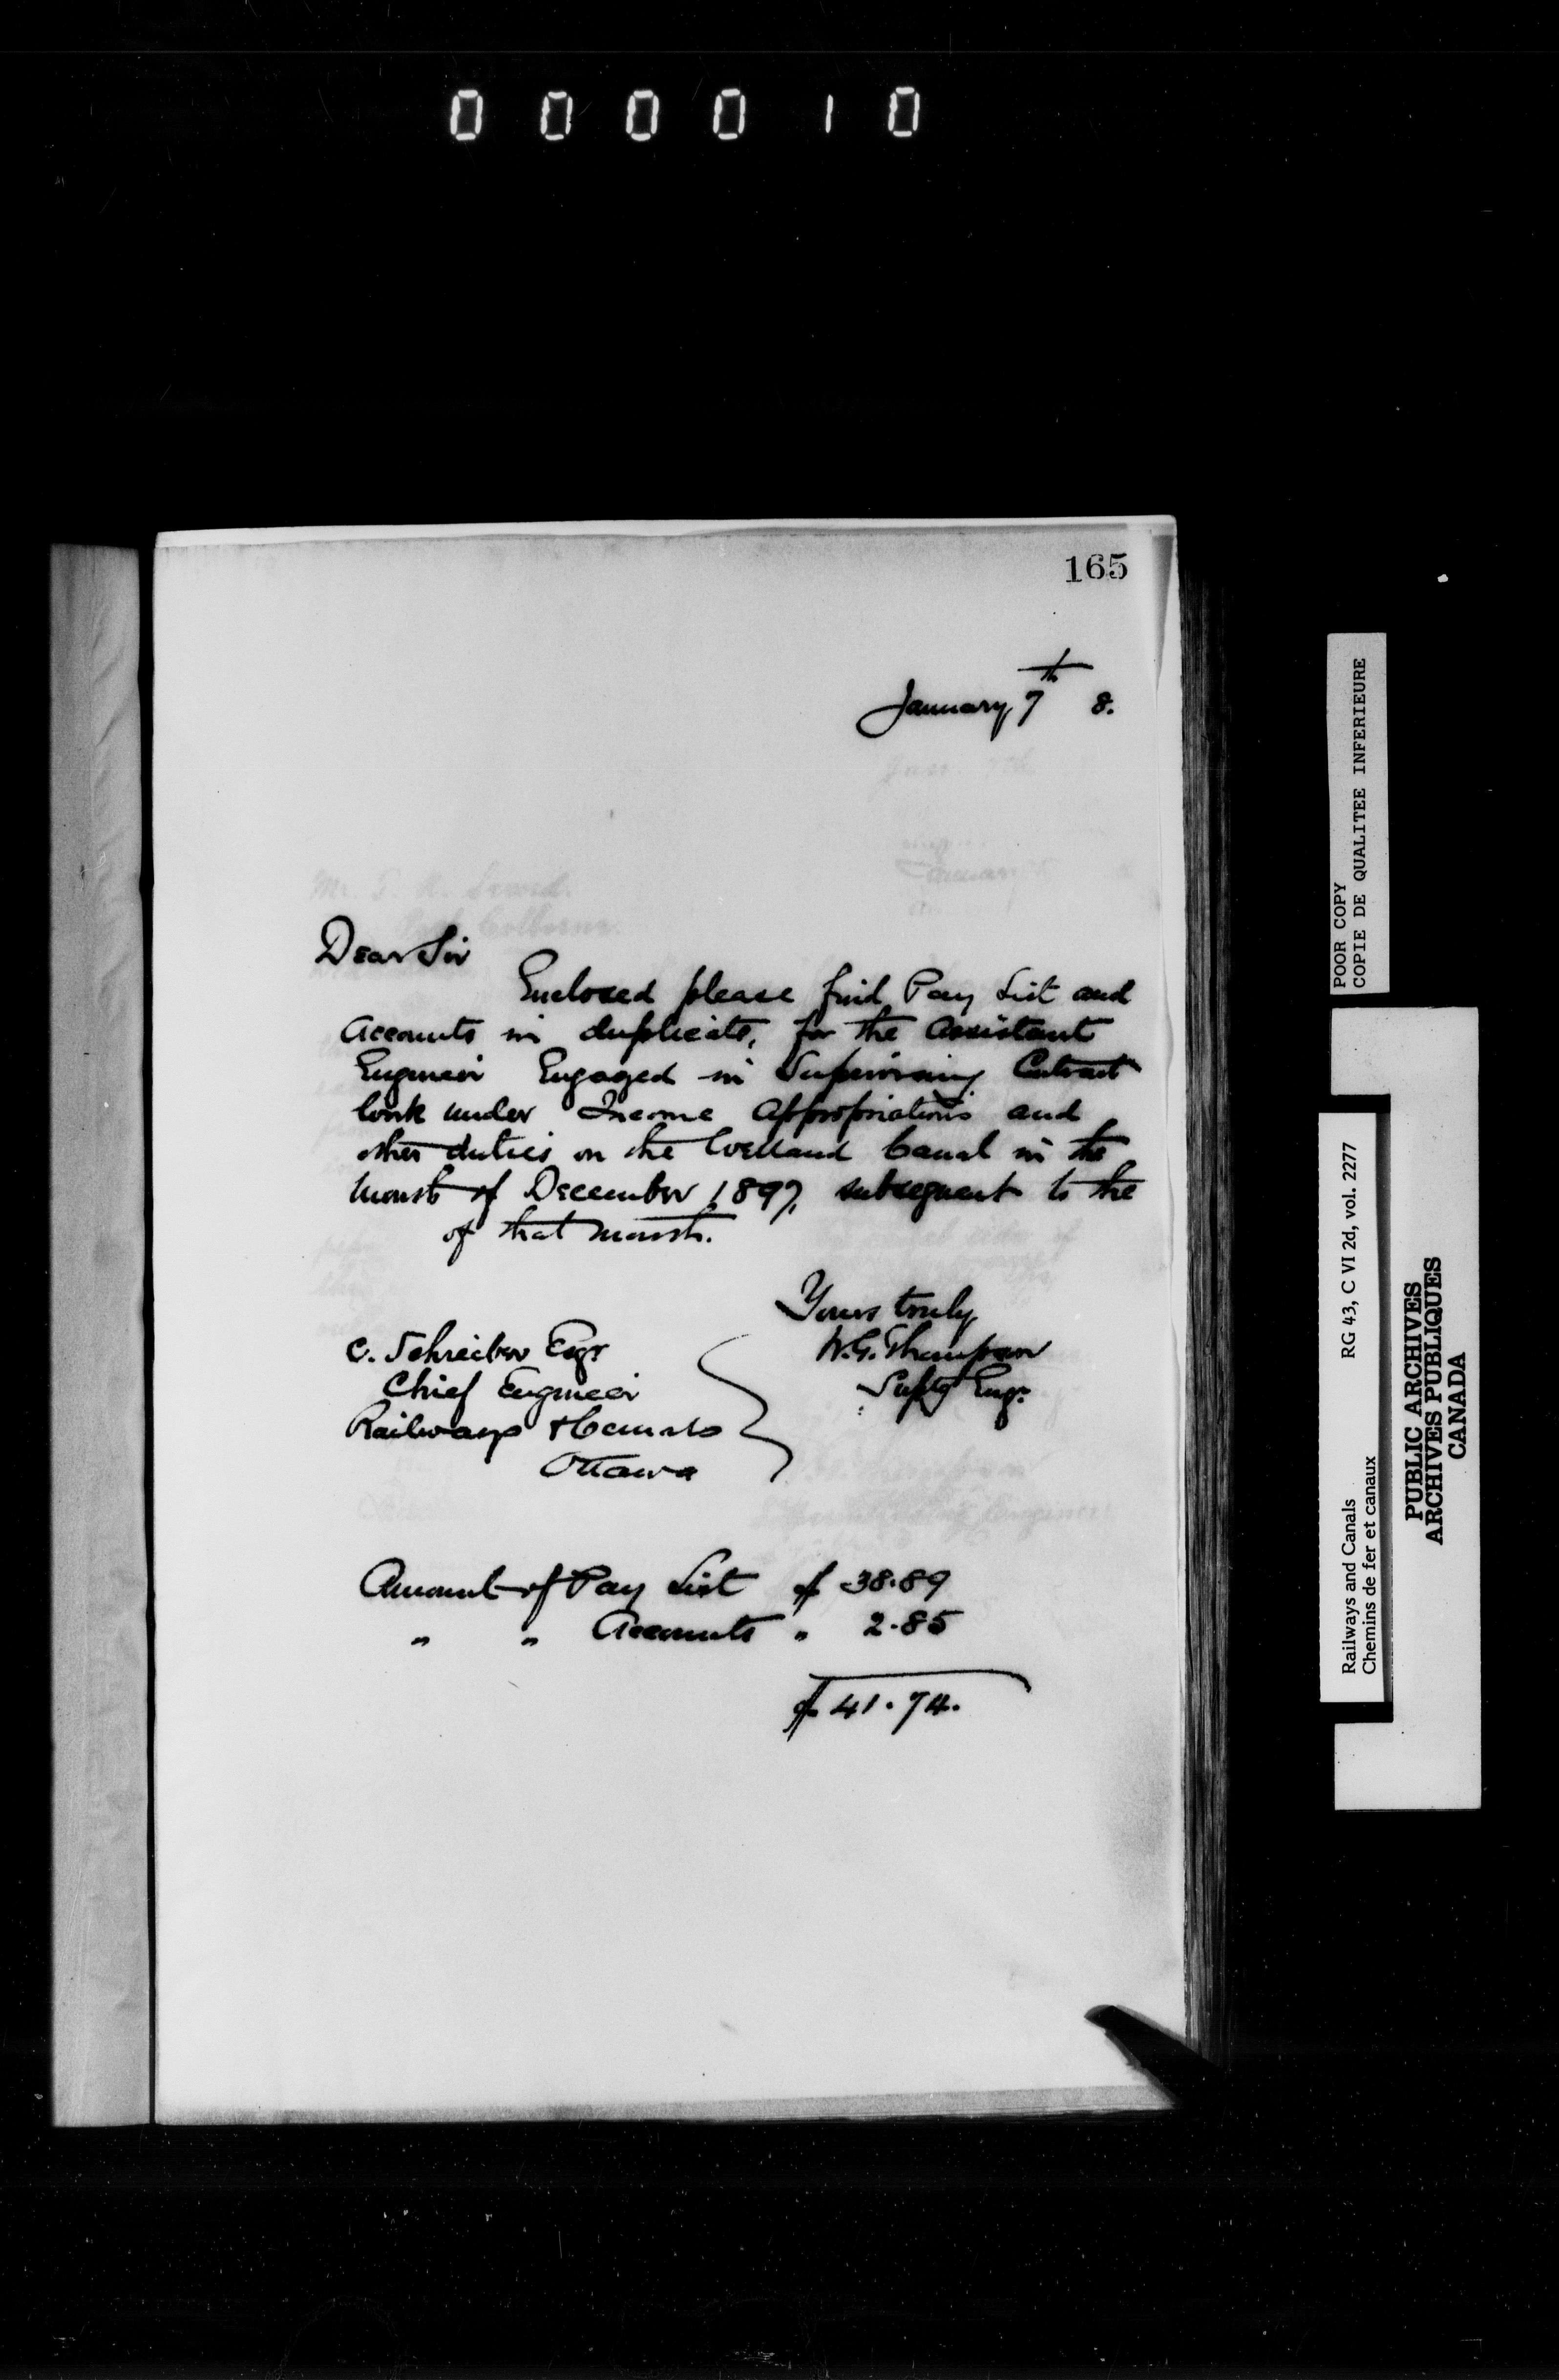 000010
165
January 7th 8.
Dear Sir
Enclosed please find Pay List and
Accounts in duplicate, for the Assistant
Engineer Engaged in Supervising Contract
Work under Income Appropriations and
other duties on the Welland Canal in the
Month of December 1897, subsequent to the
of that month.
Yours truly
W.G. Thompson
Suptg Engr.
C. Schreiber Esqr
Chief Engineer
Railways & Canals
Ottawa
Amount of Pay List $ 38.89
" " Accounts " 2.85
$ 41.74.
POOR COPY
COPIE DE QUALITEE INFERIEURE
Railways and Canals RG 43, C VI 2d, vol. 2277
Chemins de fer et canaux
PUBLIC ARCHIVES
ARCHIVES PUBLIQUES
CANADA